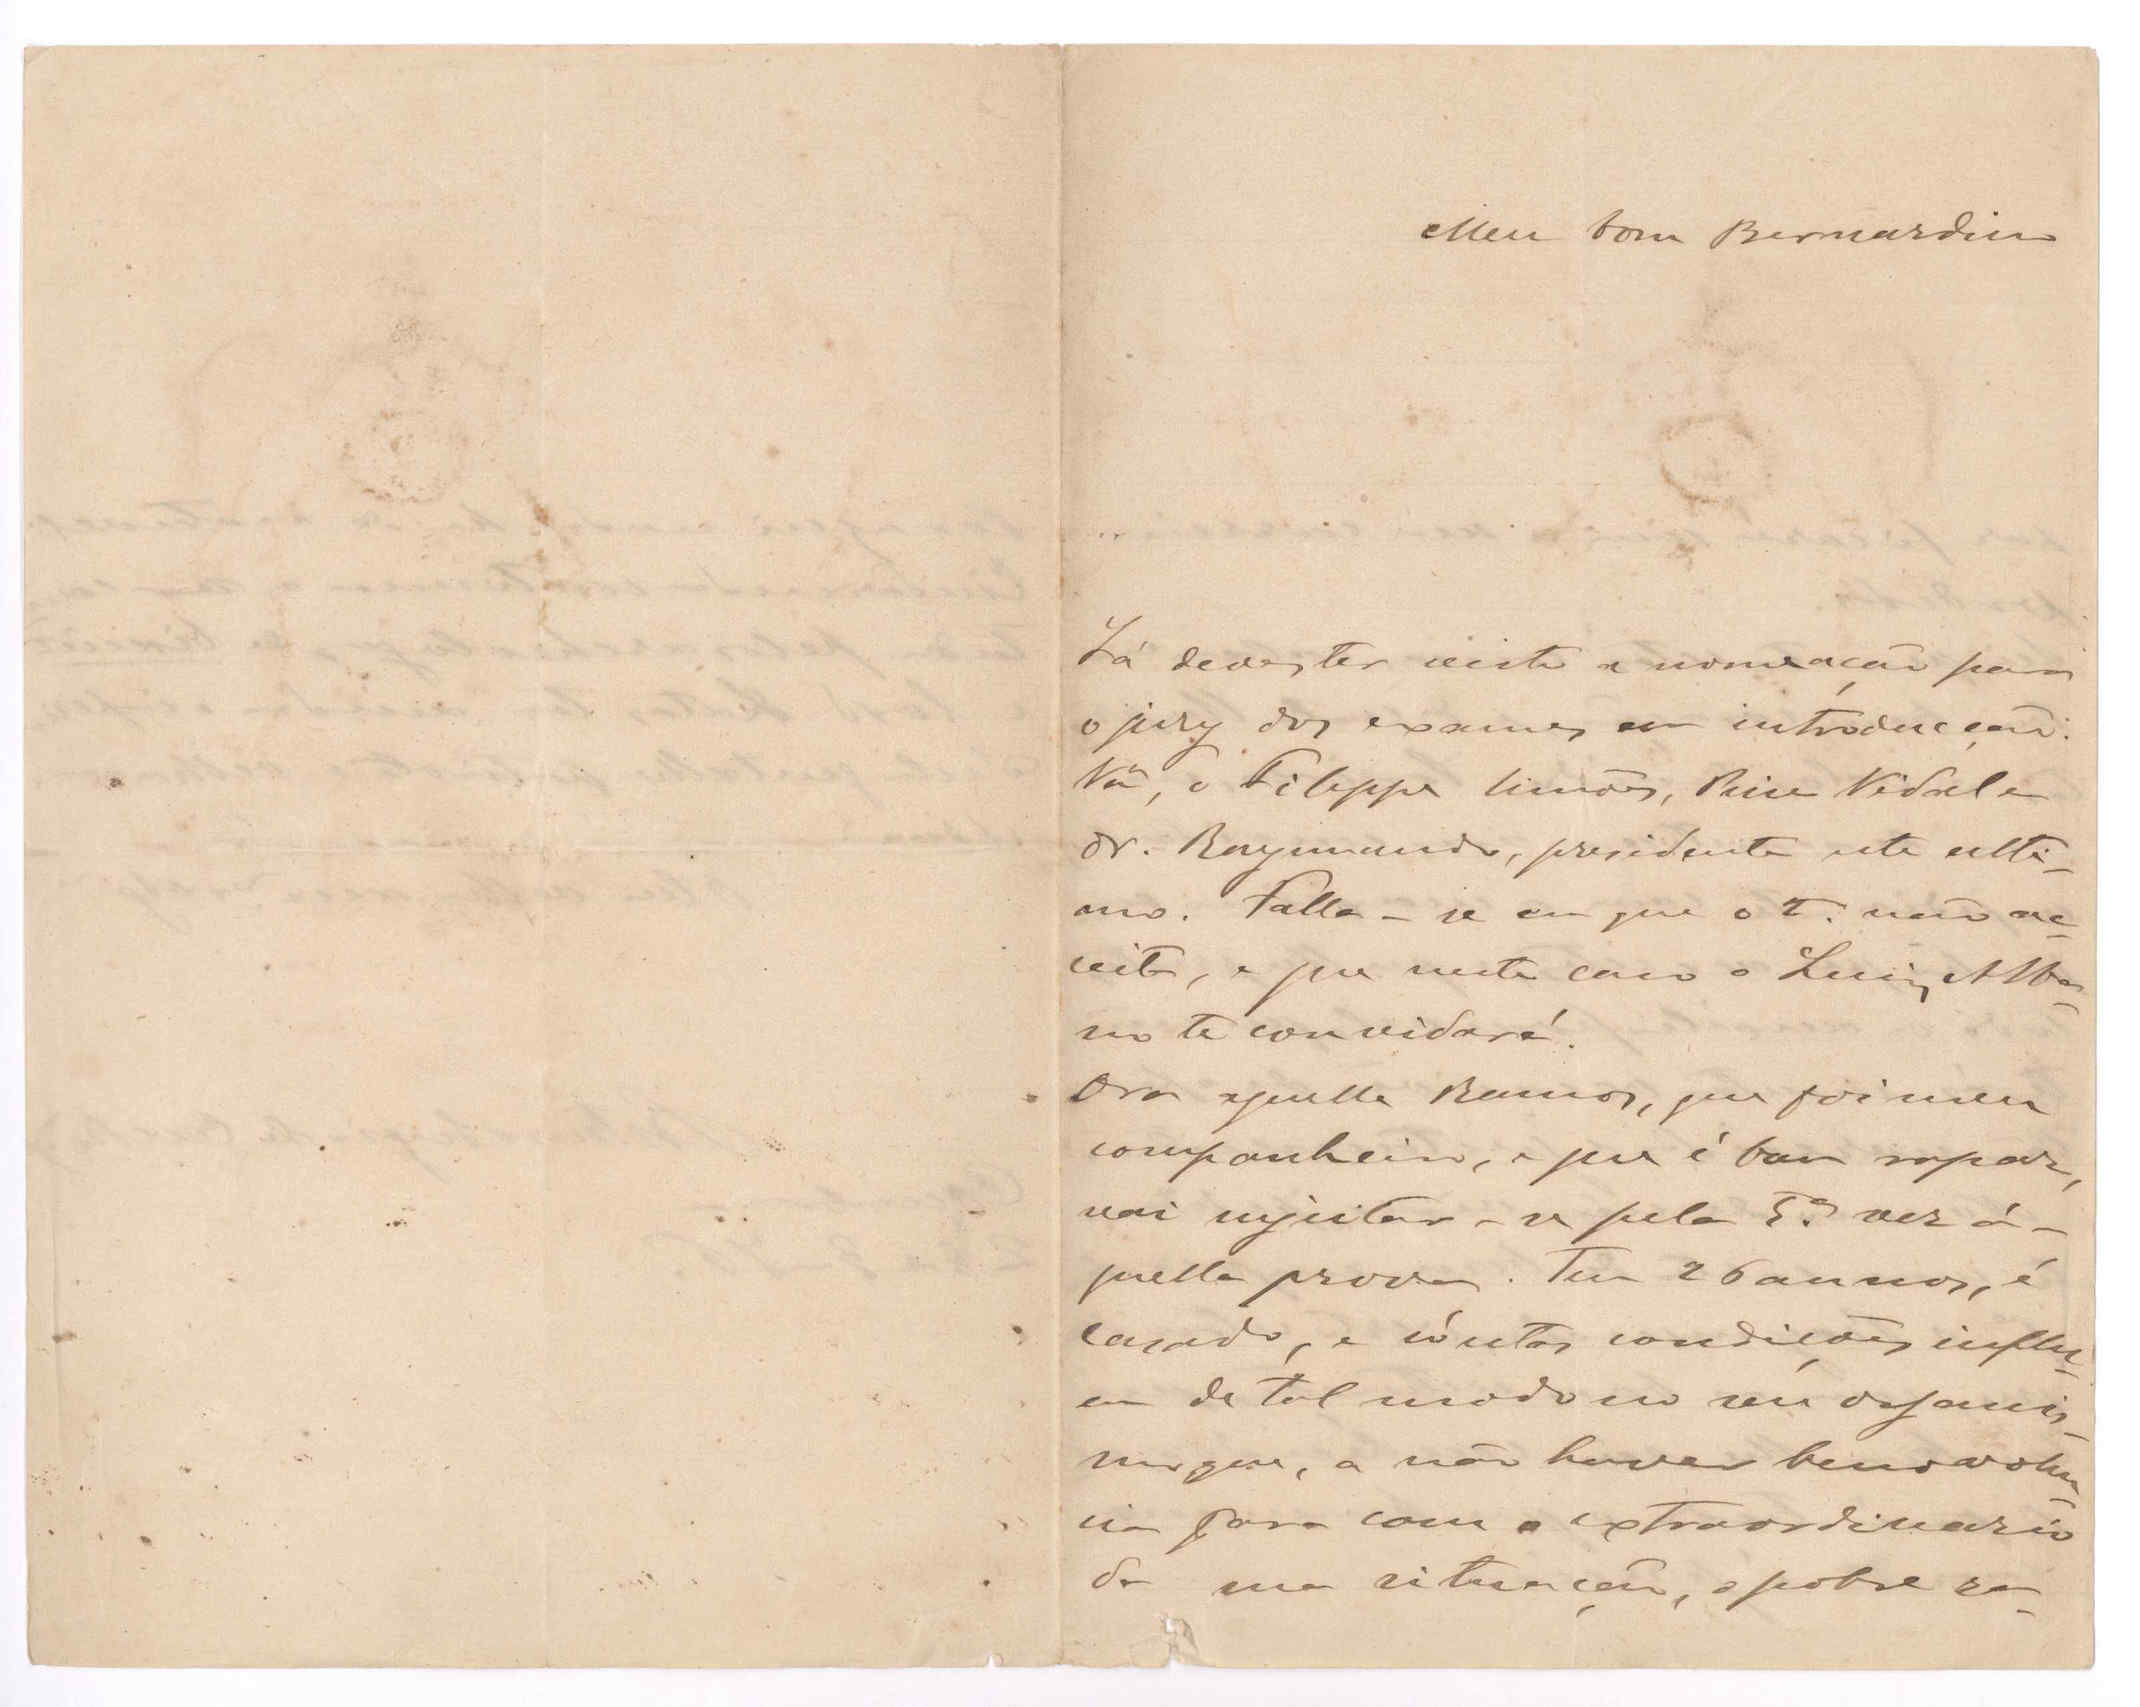 Meu bom Bernardino
Lá deves ter visto a nomeação para
o jury dos exames em introducção:
Vão, o Filippe Simões, Pina Vidal e
dr. Raymundo, presidente este ulti-
mo. Falla-se em que o F. não ac-
ceita, e que neste caso o Luiz Alba-
no te convidará.
Ora aquelle Ramos, que foi meu
companheiro, e que é bom rapaz,
vai sujeitar-se pela 5.ª vez á-
quella prova. Tem 26 annos, é
casado, e estas condições influ-
em de tal modo no seu organis-
mo que, a não haver benevolen-
cia para com o extraordinario
da sua situação, o pobre ra-